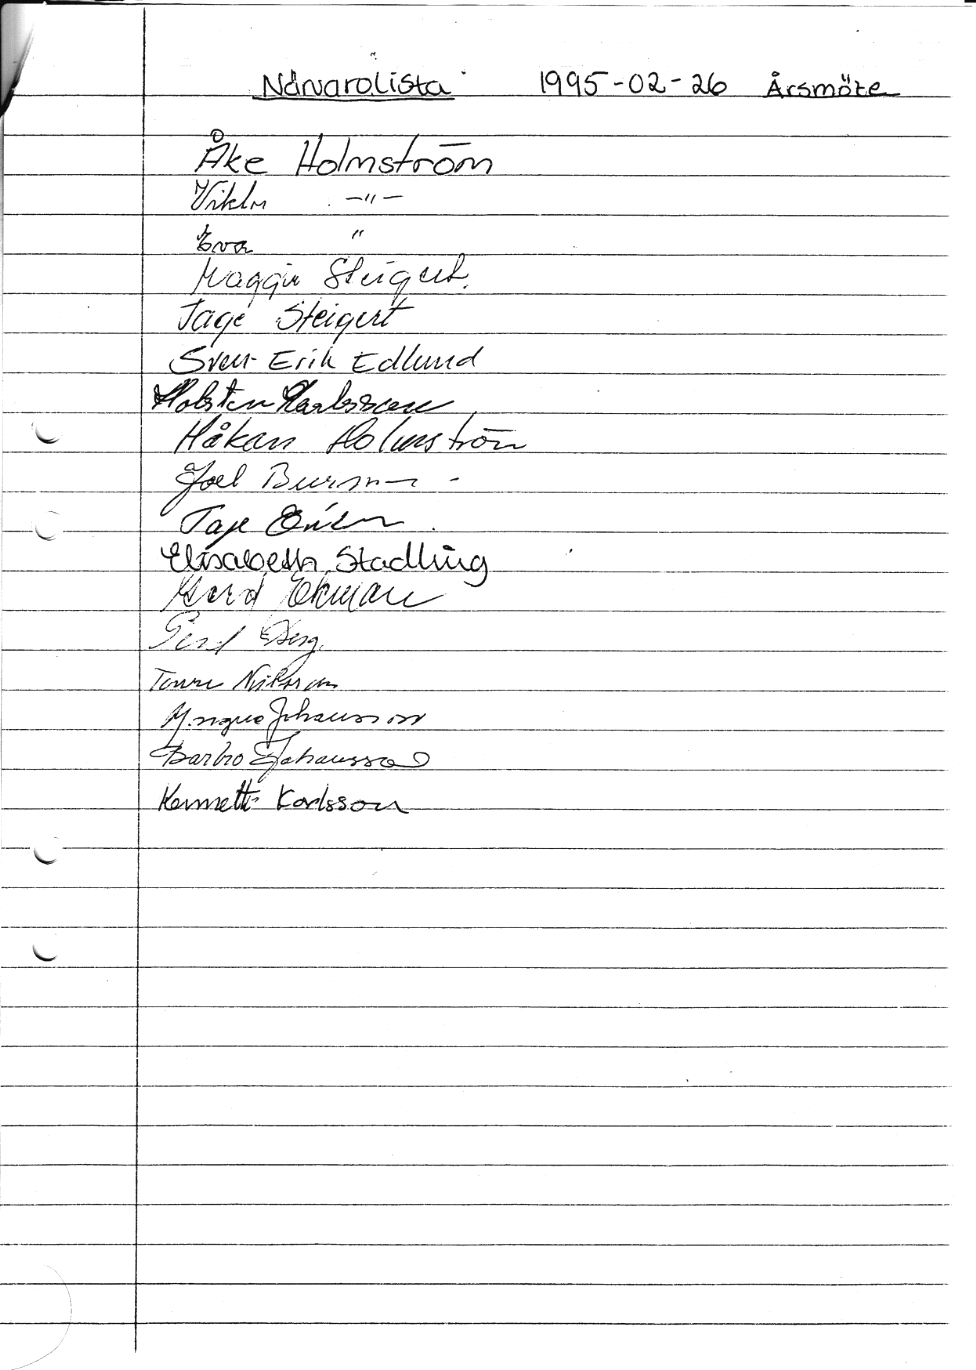 Närvarolista 1995-02-26 Årsmöte
Åke Holmström
-"-
Eva "
Maggie Steigert.
Tage Steigert
Sven-Erik Edlund
Holsten Karlsson
Håkan Holmström
Joel Burman
Tage
Elisabeth Stadling
Gerd Ekman
Berg.
Johansson
Barbro Johansson
Kenneth Karlsson